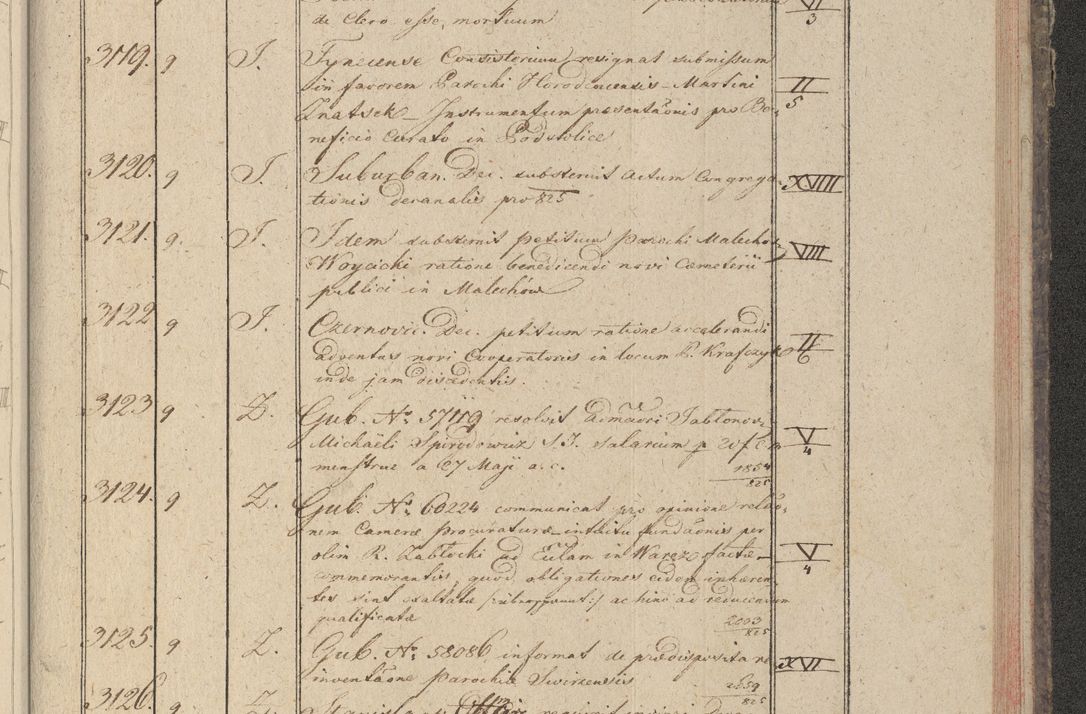 de Clero esse, mortuum
3
3119. 9 J. Tynecense Consistorium resignat submissum
in favorem Parochi Horodencensis Martini II
Knatsek Instrumentum praesentaõnis pro Be- 5
neficio Curato in Podstolice
3120. 9 J. Suburban. Dec. substernit actum Congrega- XVIII
tionis decanalis pro 825
3121. 9. J. Idem substernit petitum Parochi Malechov.
Woycicki ratione benedicendi novi Caemeterii VIII
publici in Malechów
3122 9 J. Czernovic. Dec. petitum ratione accelerandi
adventus novi Cooperatoris in locum P. Krafczyk II
inde jam discedentis. 6
3123 9 Z. Gub. No 57119 resolvit
Michaëli S. J. salarium V
menstrue a 27 Maji a. c. 1854 4
825
3124. 9 Z. Gub. No 60224 communicat pro opinione relaõ-
nem Camerae Procuraturae intuitu funduõnis per
olim R. Zabłocki ad Eulam in Warez factae V
commemorantis, quod obligationes eidem inhaeren- 4
tes sint exaltatae ac hinc ad reducendum
qualificatae 2003
825
3125. 9 Z. Gub. No 58086 informat de praedisposita re-
inventaõne Parochiae Swirzensis 1859 XVII
825
3126. 9 Z.